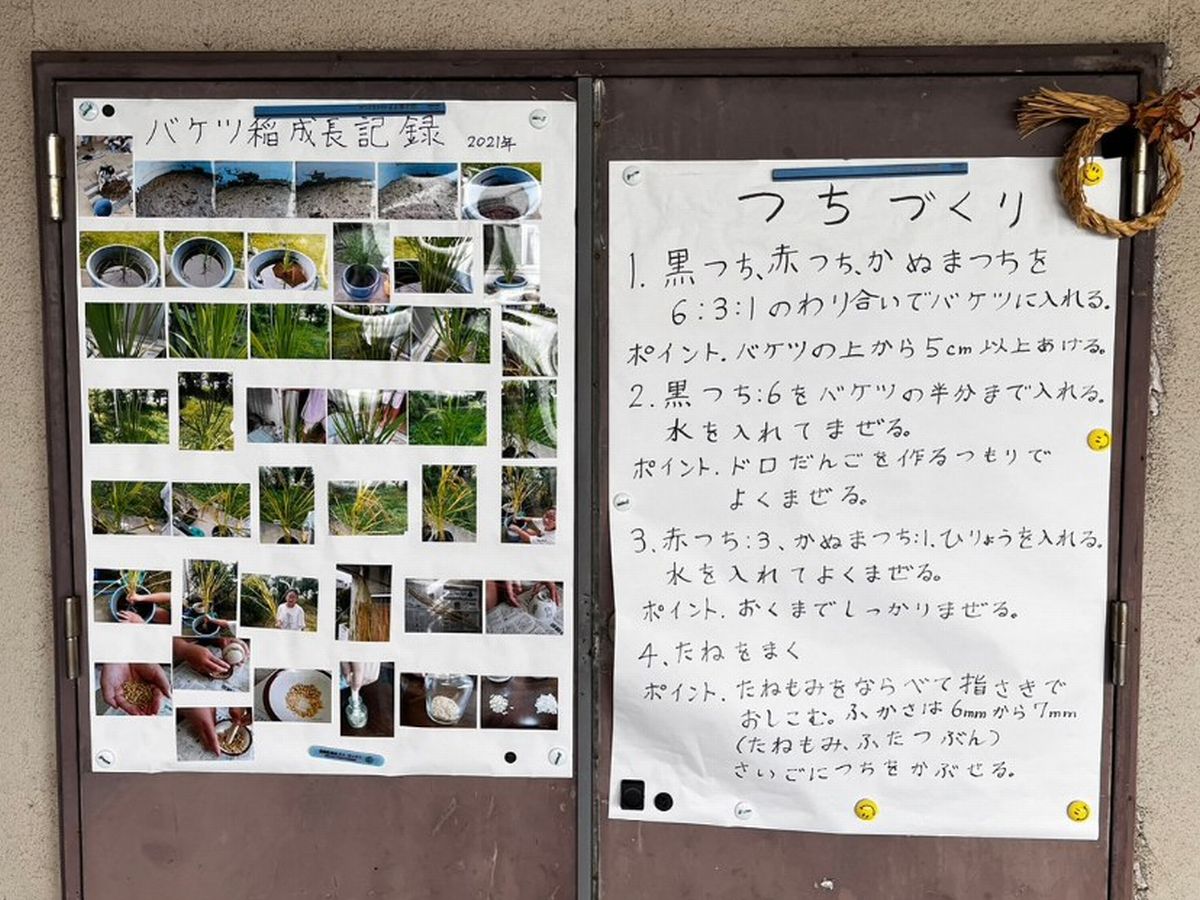 バケツ稲成長記録 2021年
つちづくり
1. 黒つち、赤つち、かぬまつちを
6:3:1のわり合いでバケツに入れる。
ポイント. バケツの上から5cm以上あける。
2. 黒つち:6をバケツの半分まで入れる。
水を入れてまぜる。
ポイント. ドロだんごを作るつもりで
よくまぜる。
3. 赤つち:3、かぬまつち:1、ひりょうを入れる。
水を入れてよくまぜる。
ポイント. おくまでしっかりまぜる。
4. たねをまく
ポイント. たねもみをならべて指さきで
おしこむ。ふかさは6mmから7mm
(たねもみ、ふたつぶん)
さいごにつちをかぶせる。